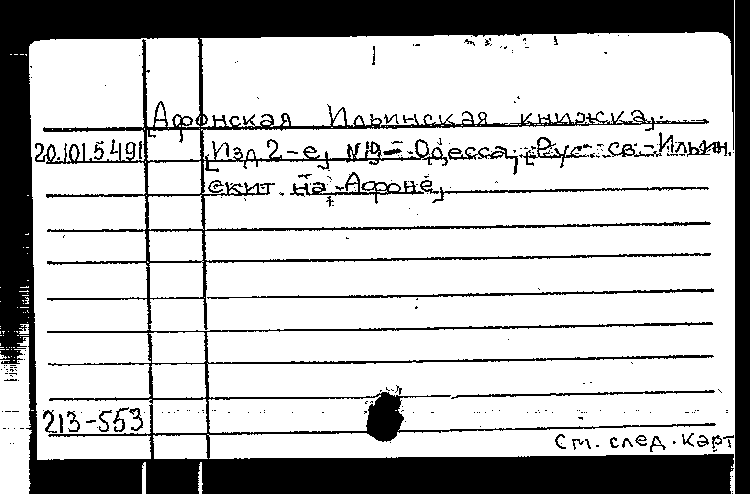 Афонская Ильинская книжка,
20.101.5.491 Изд. 2-е, N19 – Одесса, Рус св.-Ильин.
скит на Афоне,
213-553
Ст. след. карт